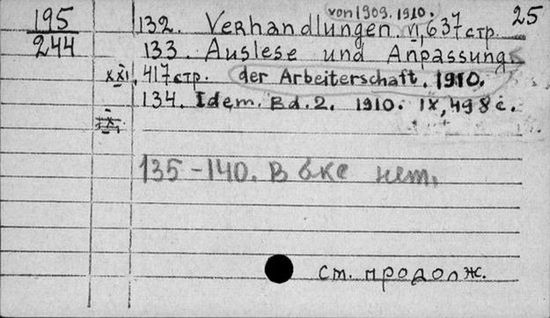 195
244
25
von 1909. 1910.
132. Verhandlungen. VI, 637 стр.
133. Auslese und Anpassung
XXI, 417 стр. der Arbeiterschaft. 1910.
134. Idem. Bd. 2. 1910. IX, 498 с.
135-140. В бке нет.
См. продолж.